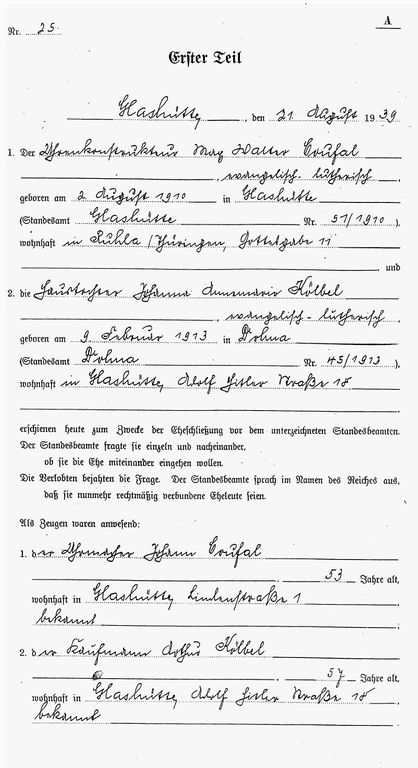 A
Nr. 25
Erster Teil
Glashütte, den 21 August 1939
1. Der Uhrenkonstrukteur Max Walter Coufal
, evangelisch-lutherisch,
geboren am 2 August 1910 in Glashütte
(Standesamt Glashütte Nr. 51/1910),
wohnhaft in Ruhla/Thüringen, Gottelgabe 11
und
2. die Haustochter Johanna Annemarie Kölbel
, evangelisch-lutherisch,
geboren am 9 Februar 1913 in Dohna
(Standesamt Dohna Nr. 45/1913),
wohnhaft in Glashütte, Adolf Hitler Straße 18
erschienen heute zum Zwecke der Eheschließung vor dem unterzeichneten Standesbeamten.
Der Standesbeamte fragte sie einzeln und nacheinander,
ob sie die Ehe miteinander eingehen wollen.
Die Verlobten bejahten die Frage. Der Standesbeamte sprach im Namen des Reiches aus,
daß sie nunmehr rechtmäßig verbundene Eheleute seien.
Als Zeugen waren anwesend:
1. der Uhrmacher Johann Coufal
, 53 Jahre alt,
wohnhaft in Glashütte, Lindenstraße 1
bekannt ;
2. der Kaufmann Arthur Kölbel
, 57 Jahre alt,
wohnhaft in Glashütte, Adolf Hitler Straße 18
bekannt